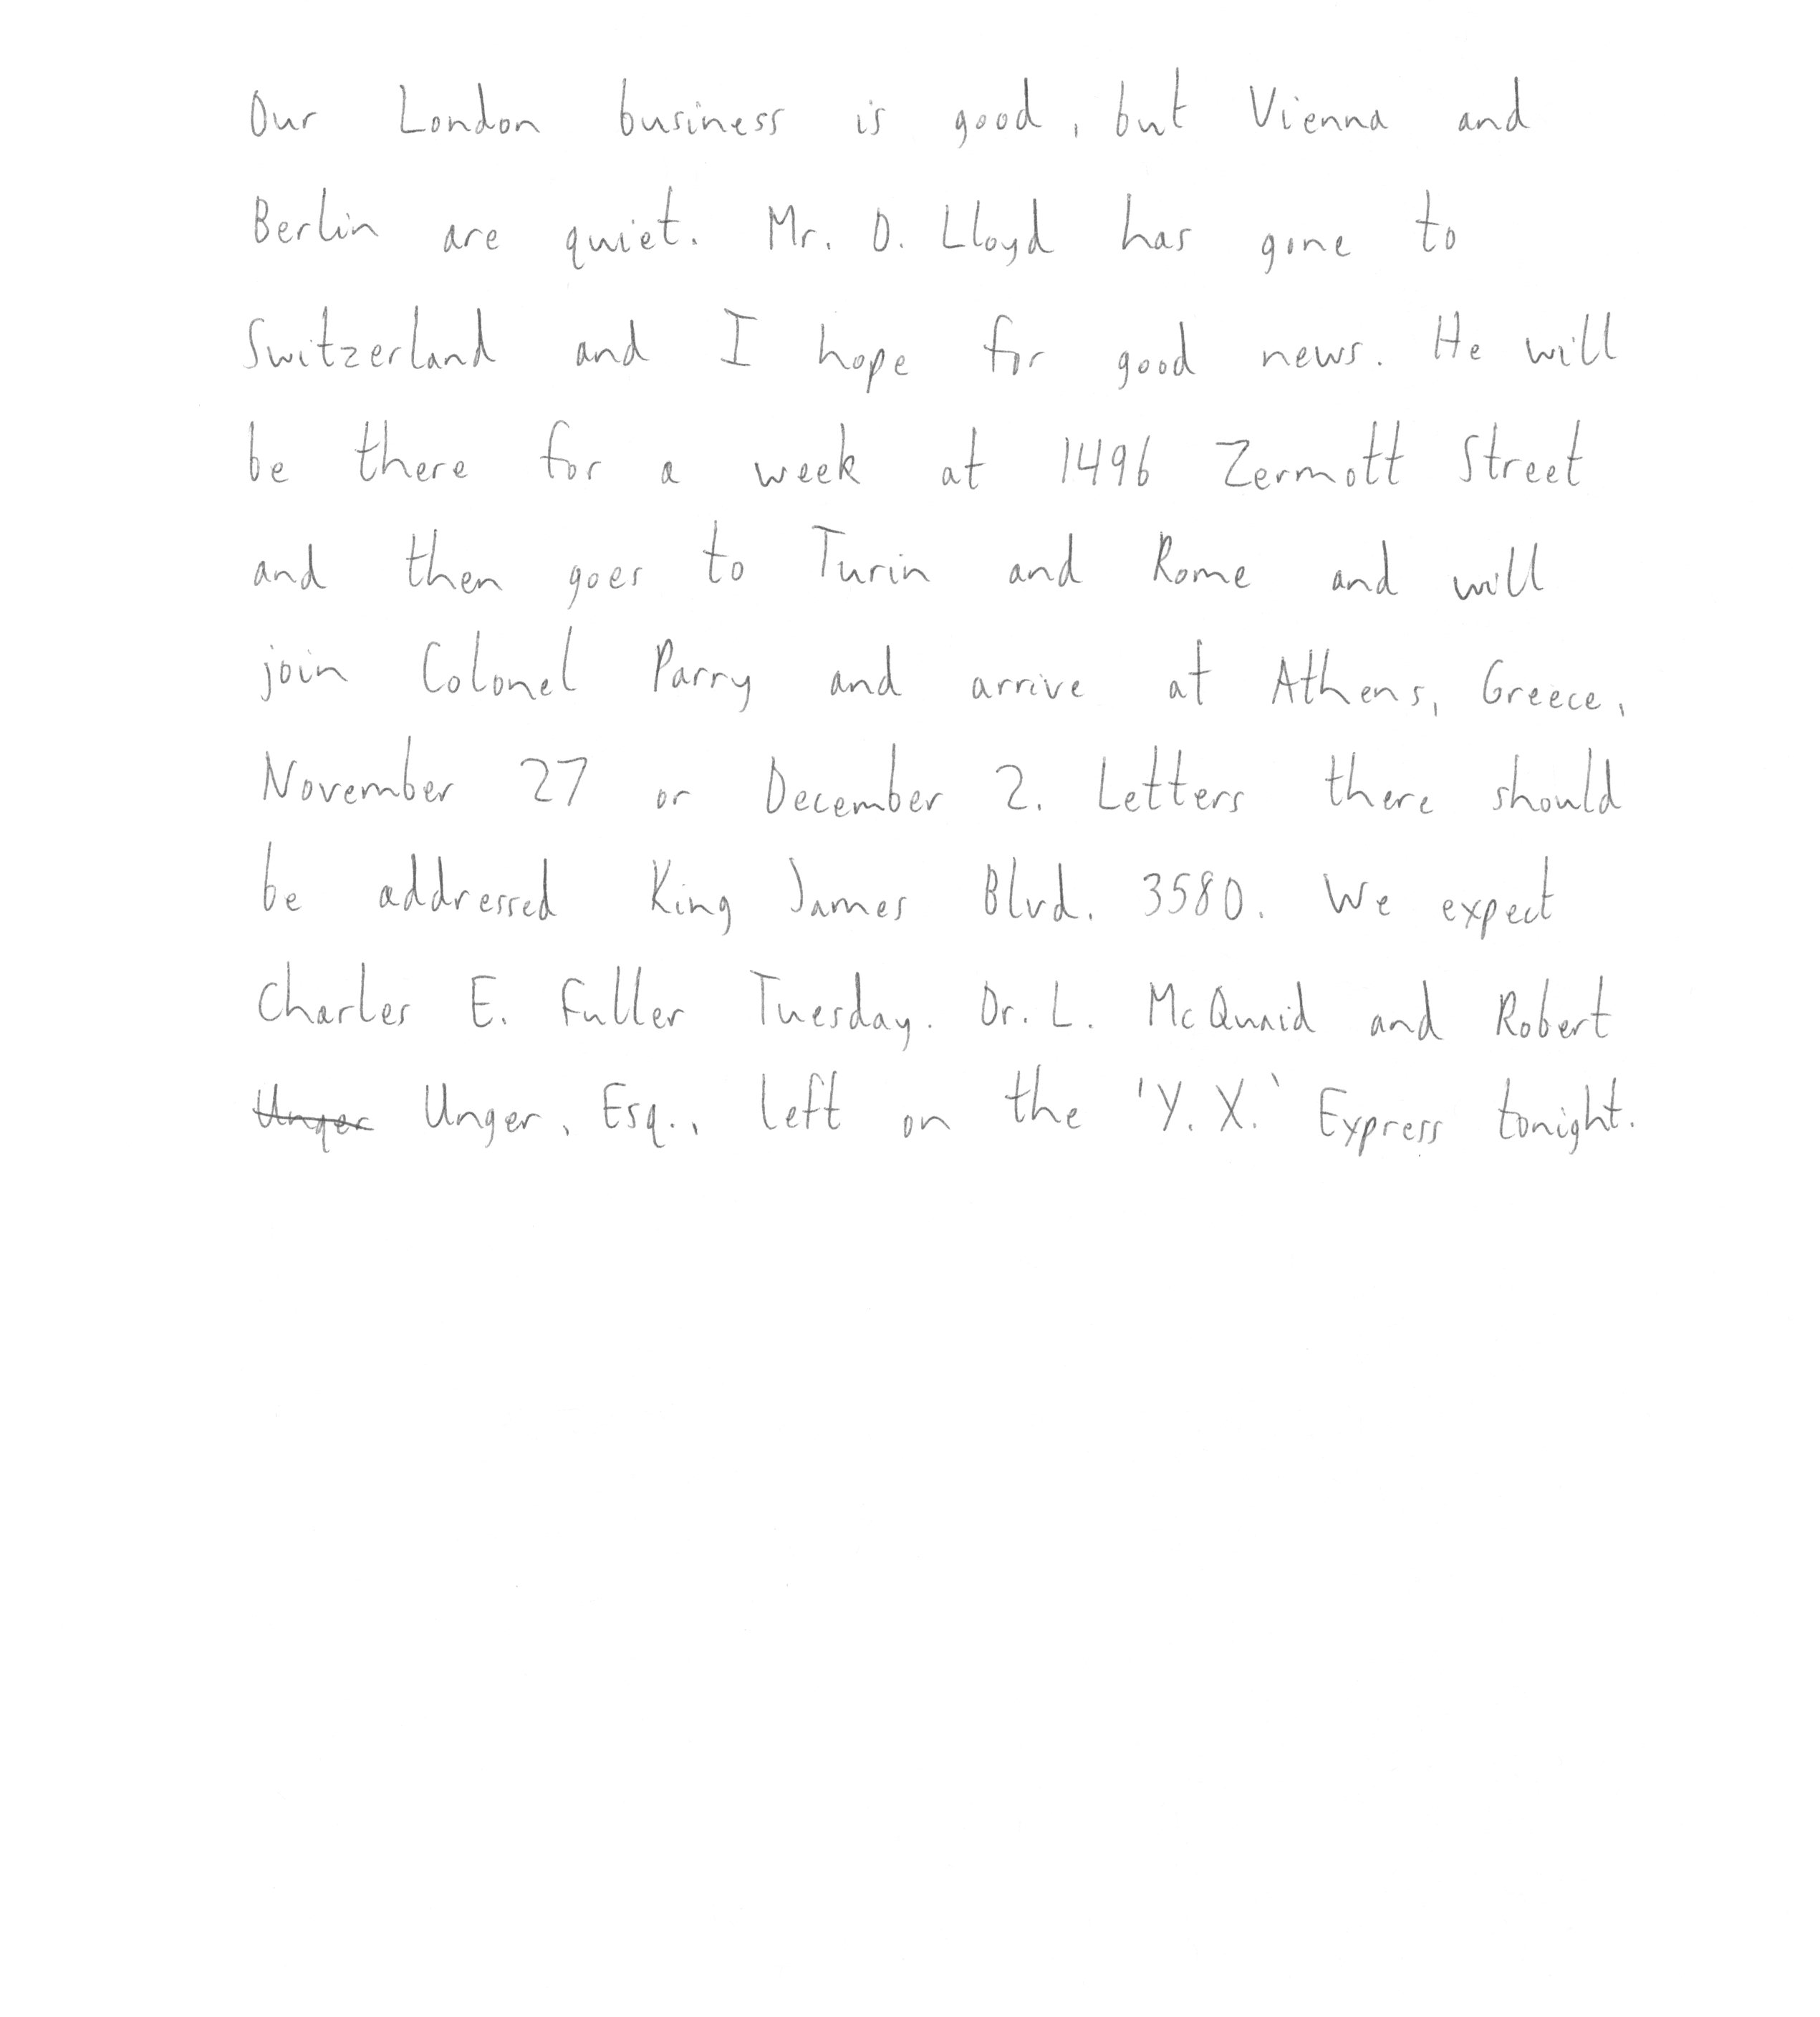 Our London business is good, but Vienna and
Berlin are quiet. Mr. D. Lloyd has gone to
Switzerland and I hope for good news. He will
be there for a week at 1496 Zermott Street
and then goes to Turin and Rome and will
join Colonel Parry and arrive at Athens, Greece,
November 27 or December 2. Letters there should
be addressed King James Blvd. 3580. We expect
Charles E. Fuller Tuesday. Dr. L. McQuaid and Robert
Unger Unger, Esq., left on the 'Y. X.' Express tonight.